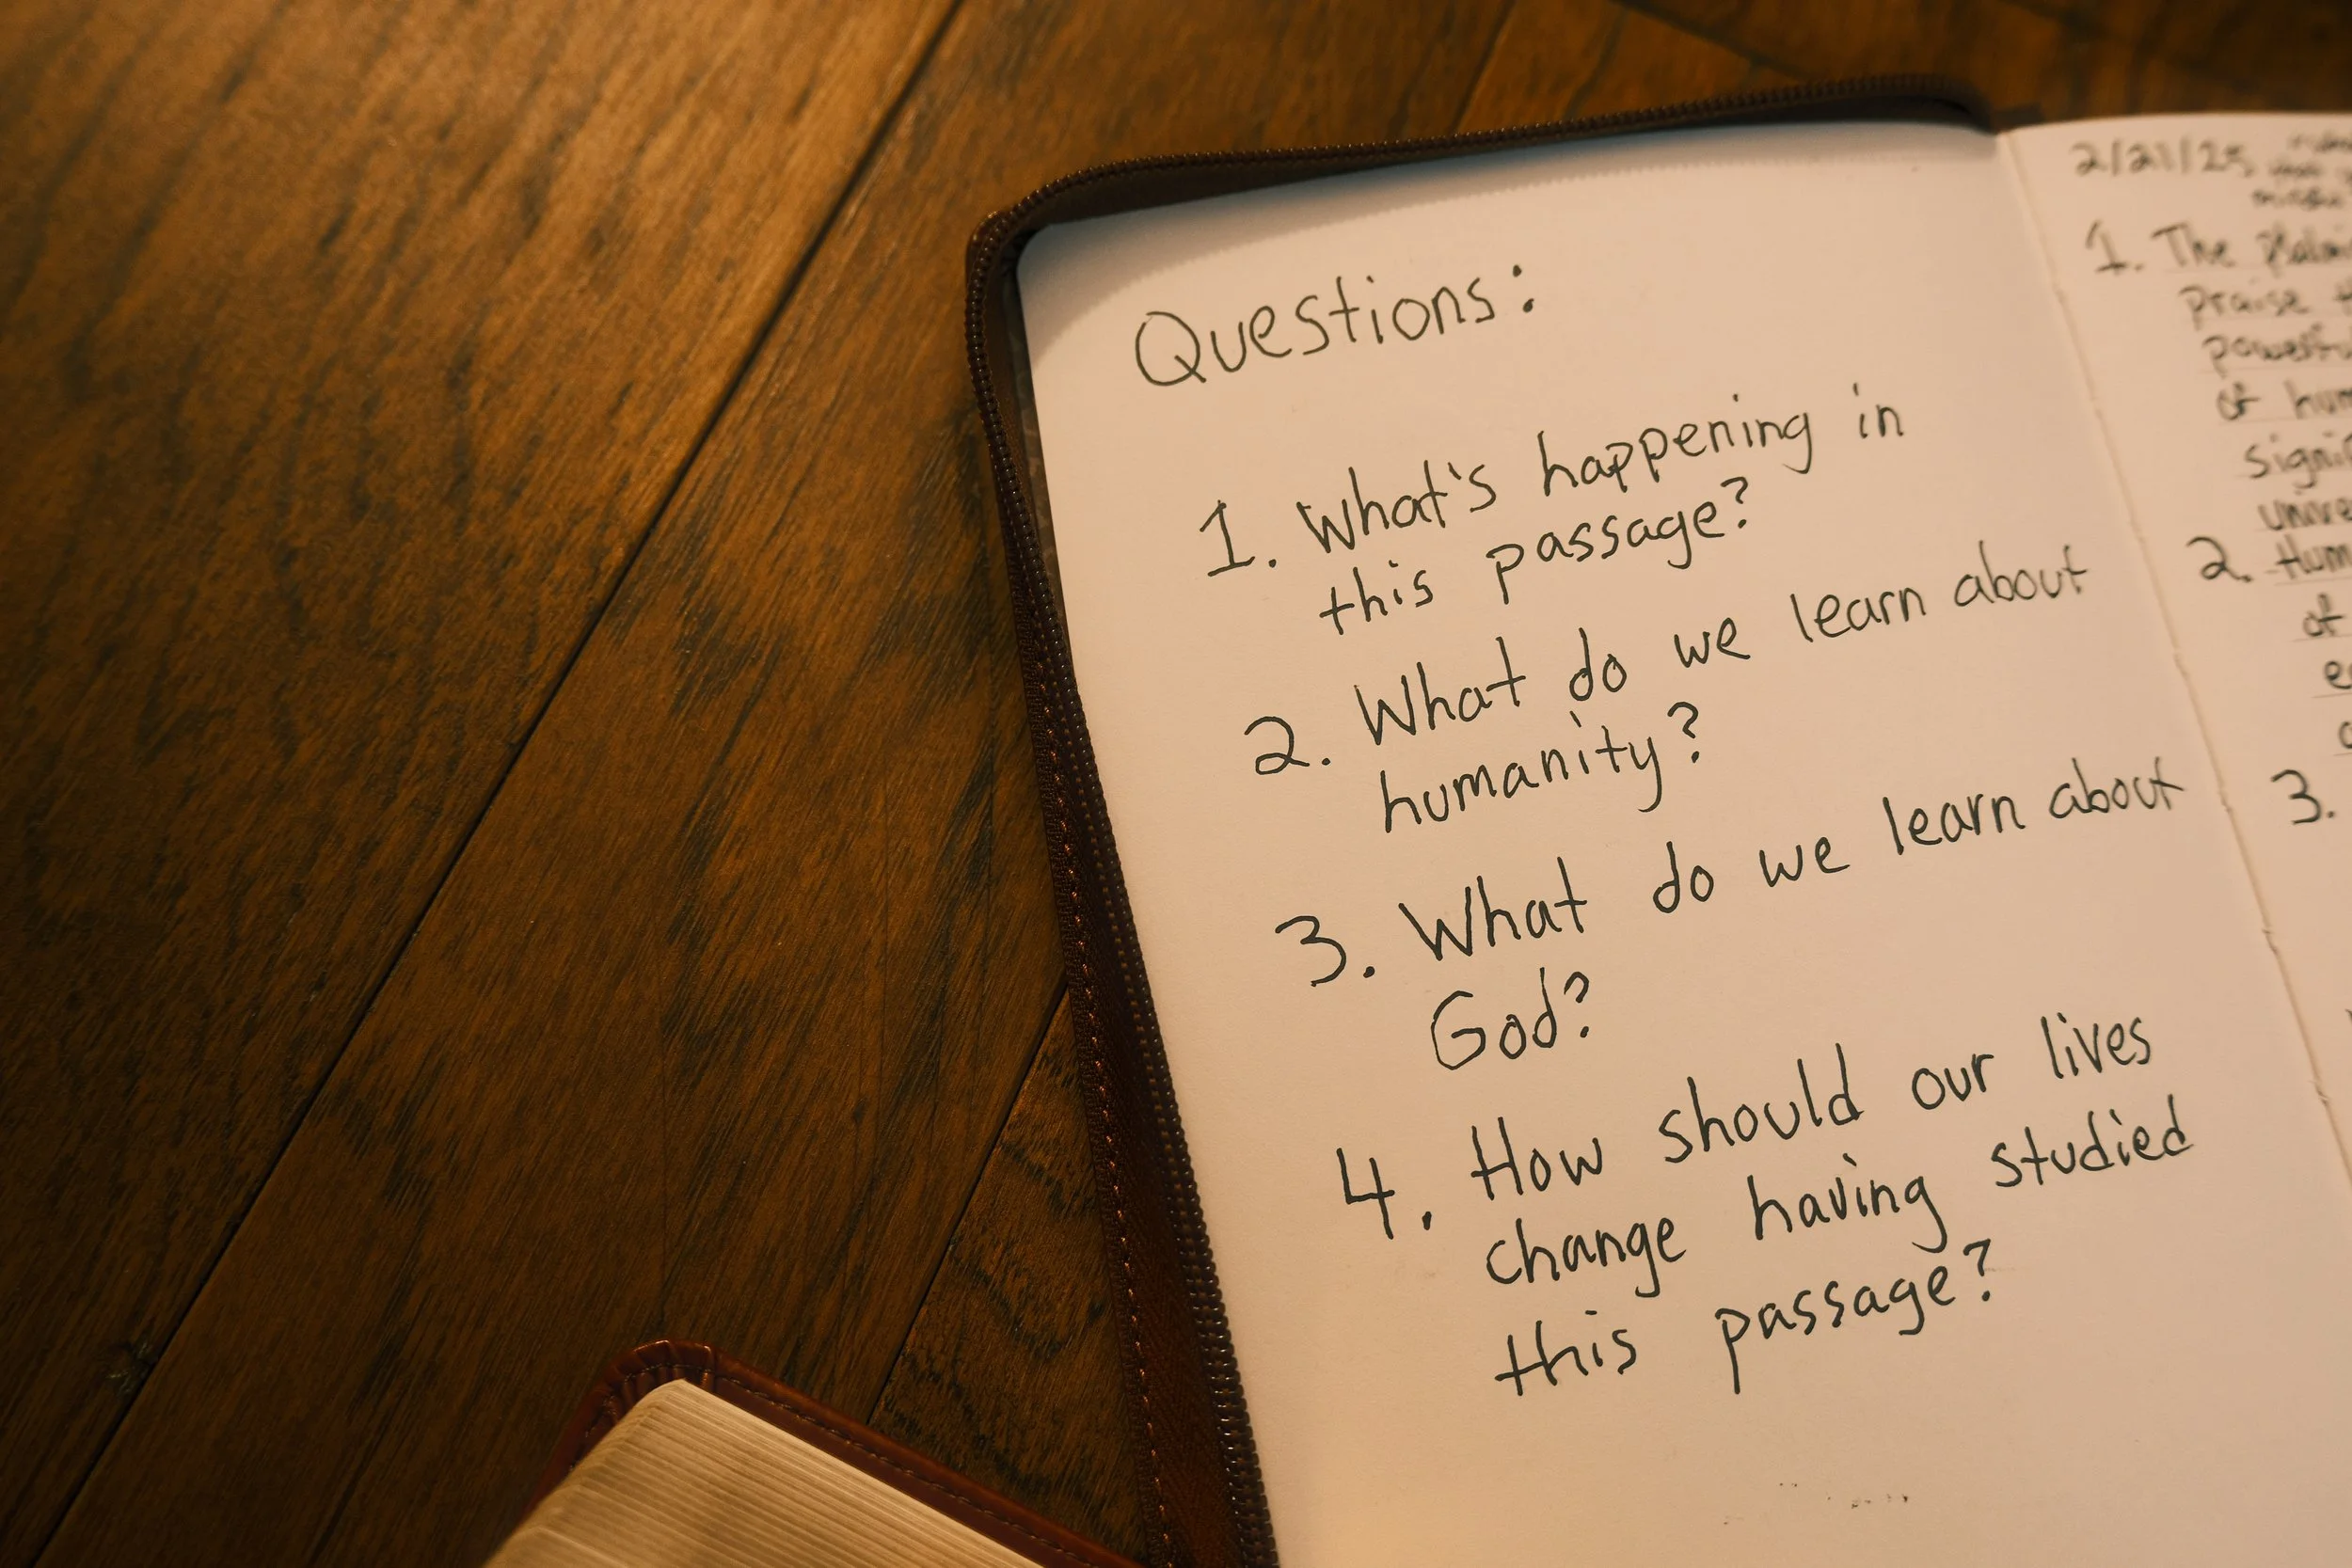 Questions:
1. What's happening in
this passage?
2. What do we learn about
humanity?
3. What do we learn about
God?
4. How should our lives
change having studied
this passage?
2/21/25
1. The
praise
of
2.
of
3.